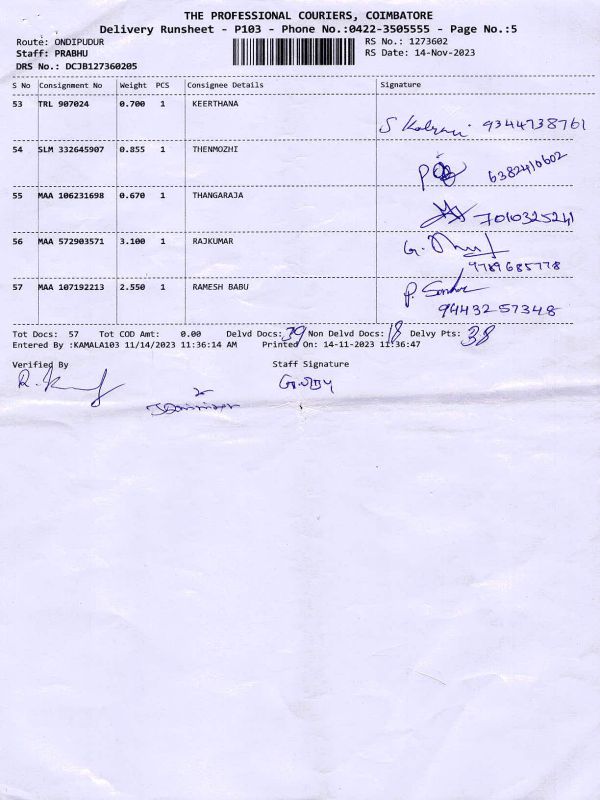 THE PROFESSIONAL COURIERS, COIMBATORE
Delivery Runsheet - P103 - Phone No.:0422-3505555 - Page No.:5
Route: ONDIPUDUR RS No.: 1273602
Staff: PRABHU RS Date: 14-Nov-2023
DRS No.: DCJB127360205
S No Consignment No Weight PCS Consignee Details Signature
53 TRL 907024 0.700 1 KEERTHANA
9344738761
54 SLM 332645907 0.855 1 THENMOZHI
6382410602
55 MAA 106231698 0.670 1 THANGARAJA
7010325241
56 MAA 572903571 3.100 1 RAJKUMAR
9789685778
57 MAA 107192213 2.550 1 RAMESH BABU
9443257348
Tot Docs: 57 Tot COD Amt: 0.00 Delvd Docs: 39 Non Delvd Docs: 18 Delvy Pts: 38
Entered By :KAMALA103 11/14/2023 11:36:14 AM Printed On: 14-11-2023 11:36:47
Verified By Staff Signature